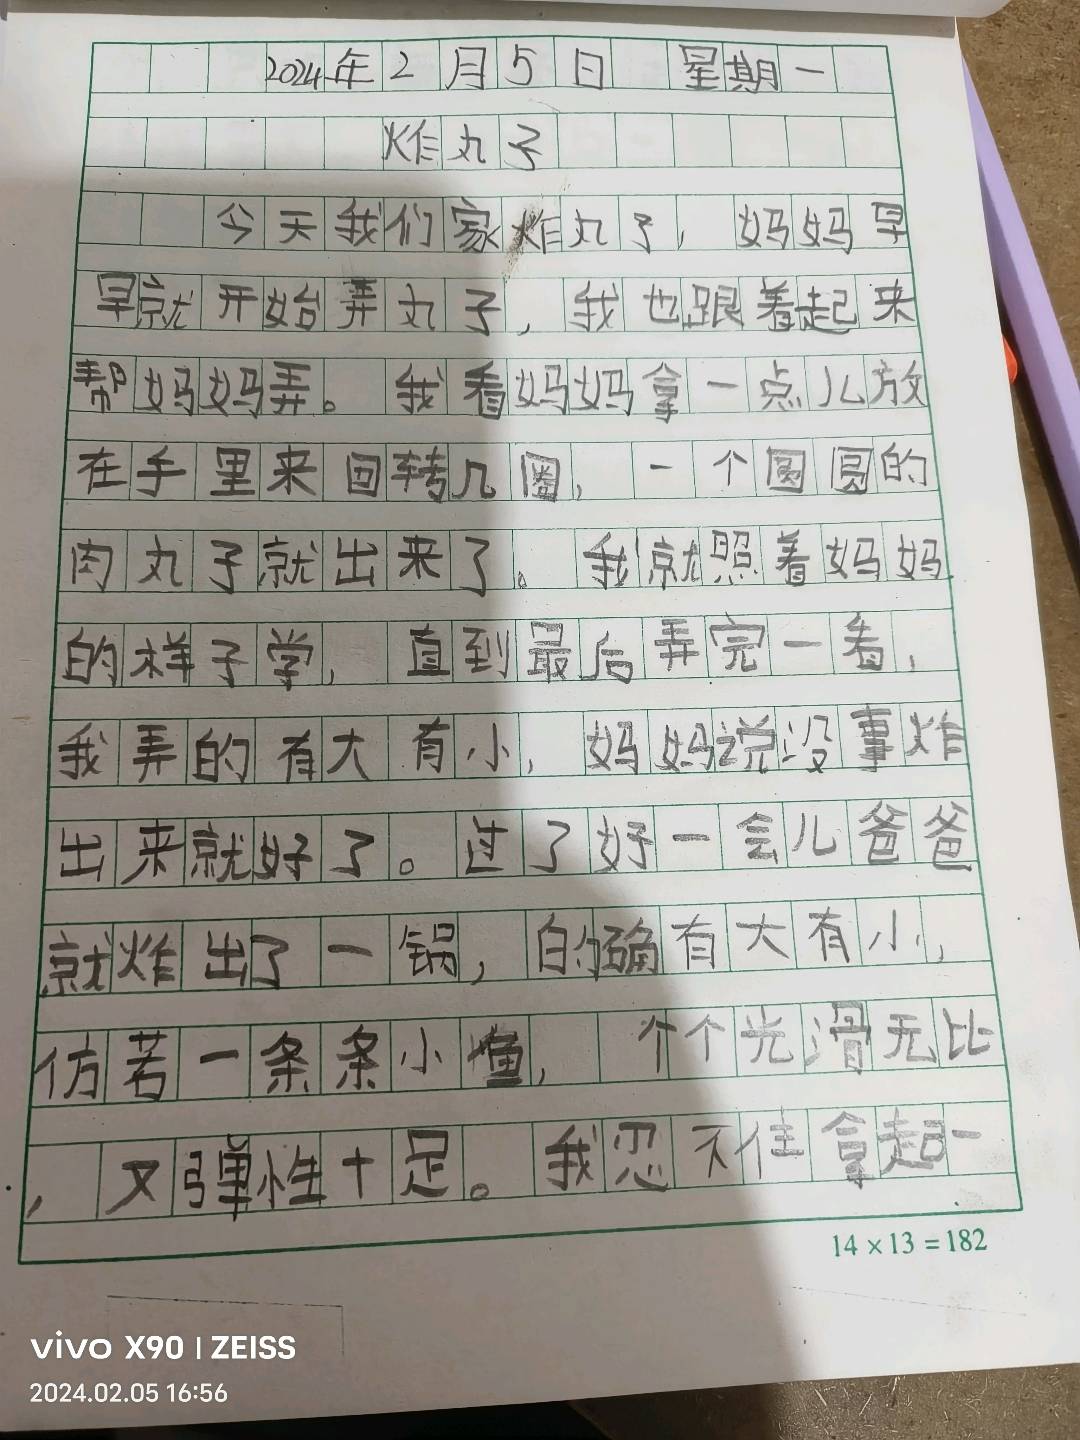 2024年2月5日 星期一
炸丸子
今天我们家炸丸子，妈妈早
早就开始弄丸子，我也跟着起来
帮妈妈弄。我看妈妈拿一点儿放
在手里来回转几圈，一个圆圆的
肉丸子就出来了。我就照着妈妈
的样子学，直到最后弄完一看，
我弄的有大有小，妈妈说没事炸
出来就好了。过了好一会儿爸爸
就炸出了一锅，的确有大有小，
仿若一条条小，个个光滑无比
，又弹性十足。我忍不住拿起一
14×13=182
vivo X90 | ZEISS
2024.02.05 16:56